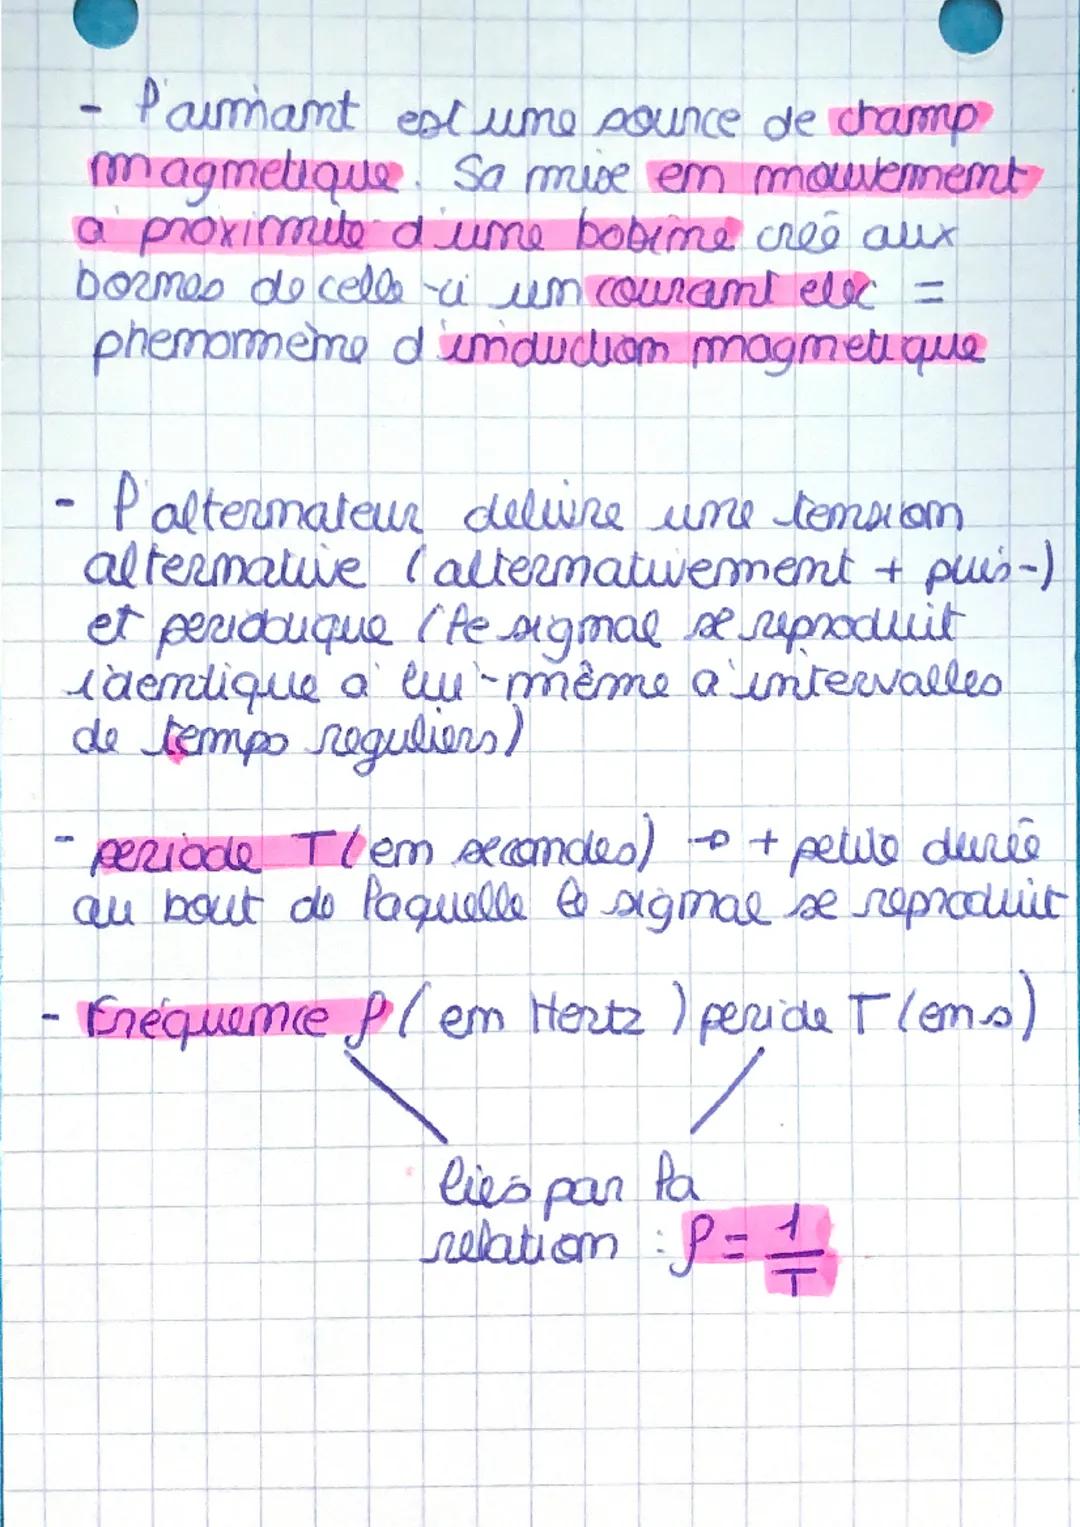 - l'aimant est une source de champ
magnetique. Sa mise en mouvement
a proximité d'une bobine crée aux
bornes de celle-ci un courant elec =
phenomème d'induction magnetique
- l'alternateur delivre une tension
alternative (alternativement + puis -)
et periodique (le signal se reproduit
identique a lui-même a intervalles
de temps reguliers)
- periode T (en secondes) → + petite durée
au bout de laquelle le signal se reproduit
- Fréquence f (en Hertz) periode T (en s)
liés par la
relation : f = 1/T